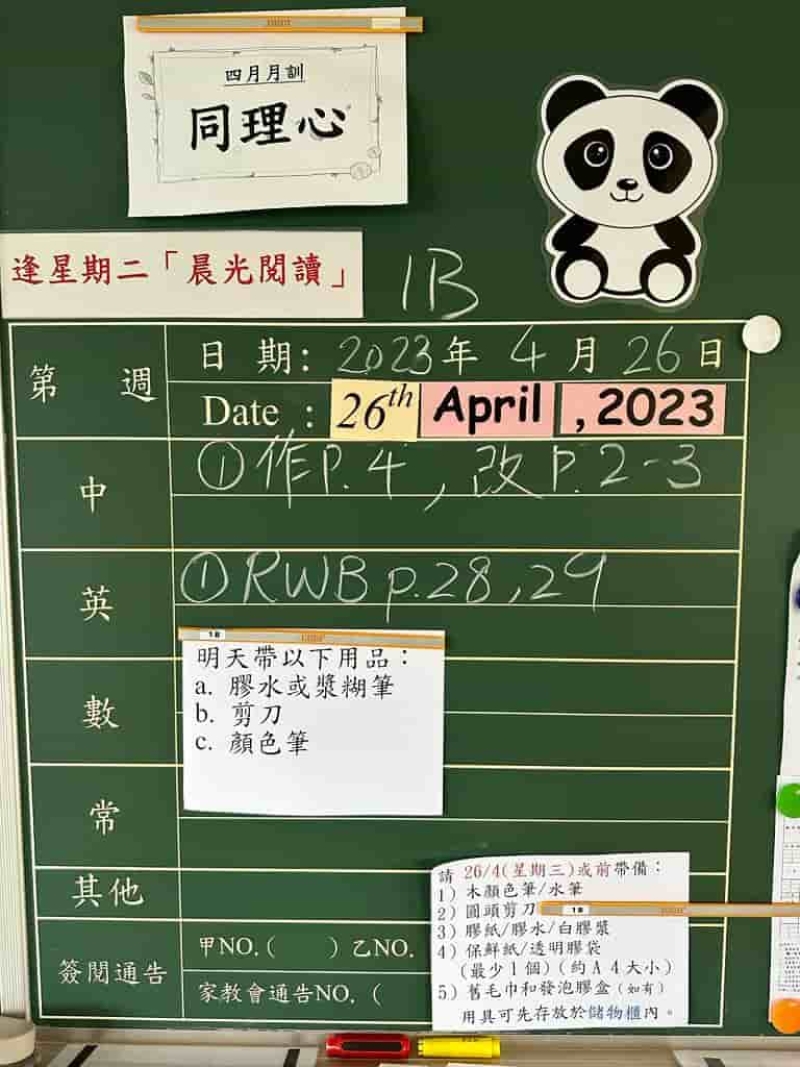 四月月訓
同理心
逢星期二「晨光閱讀」
1B
第 週
日 期: 2023年 4 月 26 日
Date : 26th April , 2023
中
①作P. 4 , 改P. 2-3
英
①RWB p.28 , 29
1B
明天帶以下用品：
a. 膠水或漿糊筆
b. 剪刀
c. 顏色筆
數
常
其他
請 26/4(星期三)或前帶備：
1) 木顏色筆/水筆
2) 圓頭剪刀
1B
3) 膠紙/膠水/白膠漿
4) 保鮮紙/透明膠袋
(最少1個)(約A4大小)
5) 舊毛巾和發泡膠盒(如有)
用具可先存放於儲物櫃內。
簽閱通告
甲NO.( ) 乙NO.
家教會通告NO. (